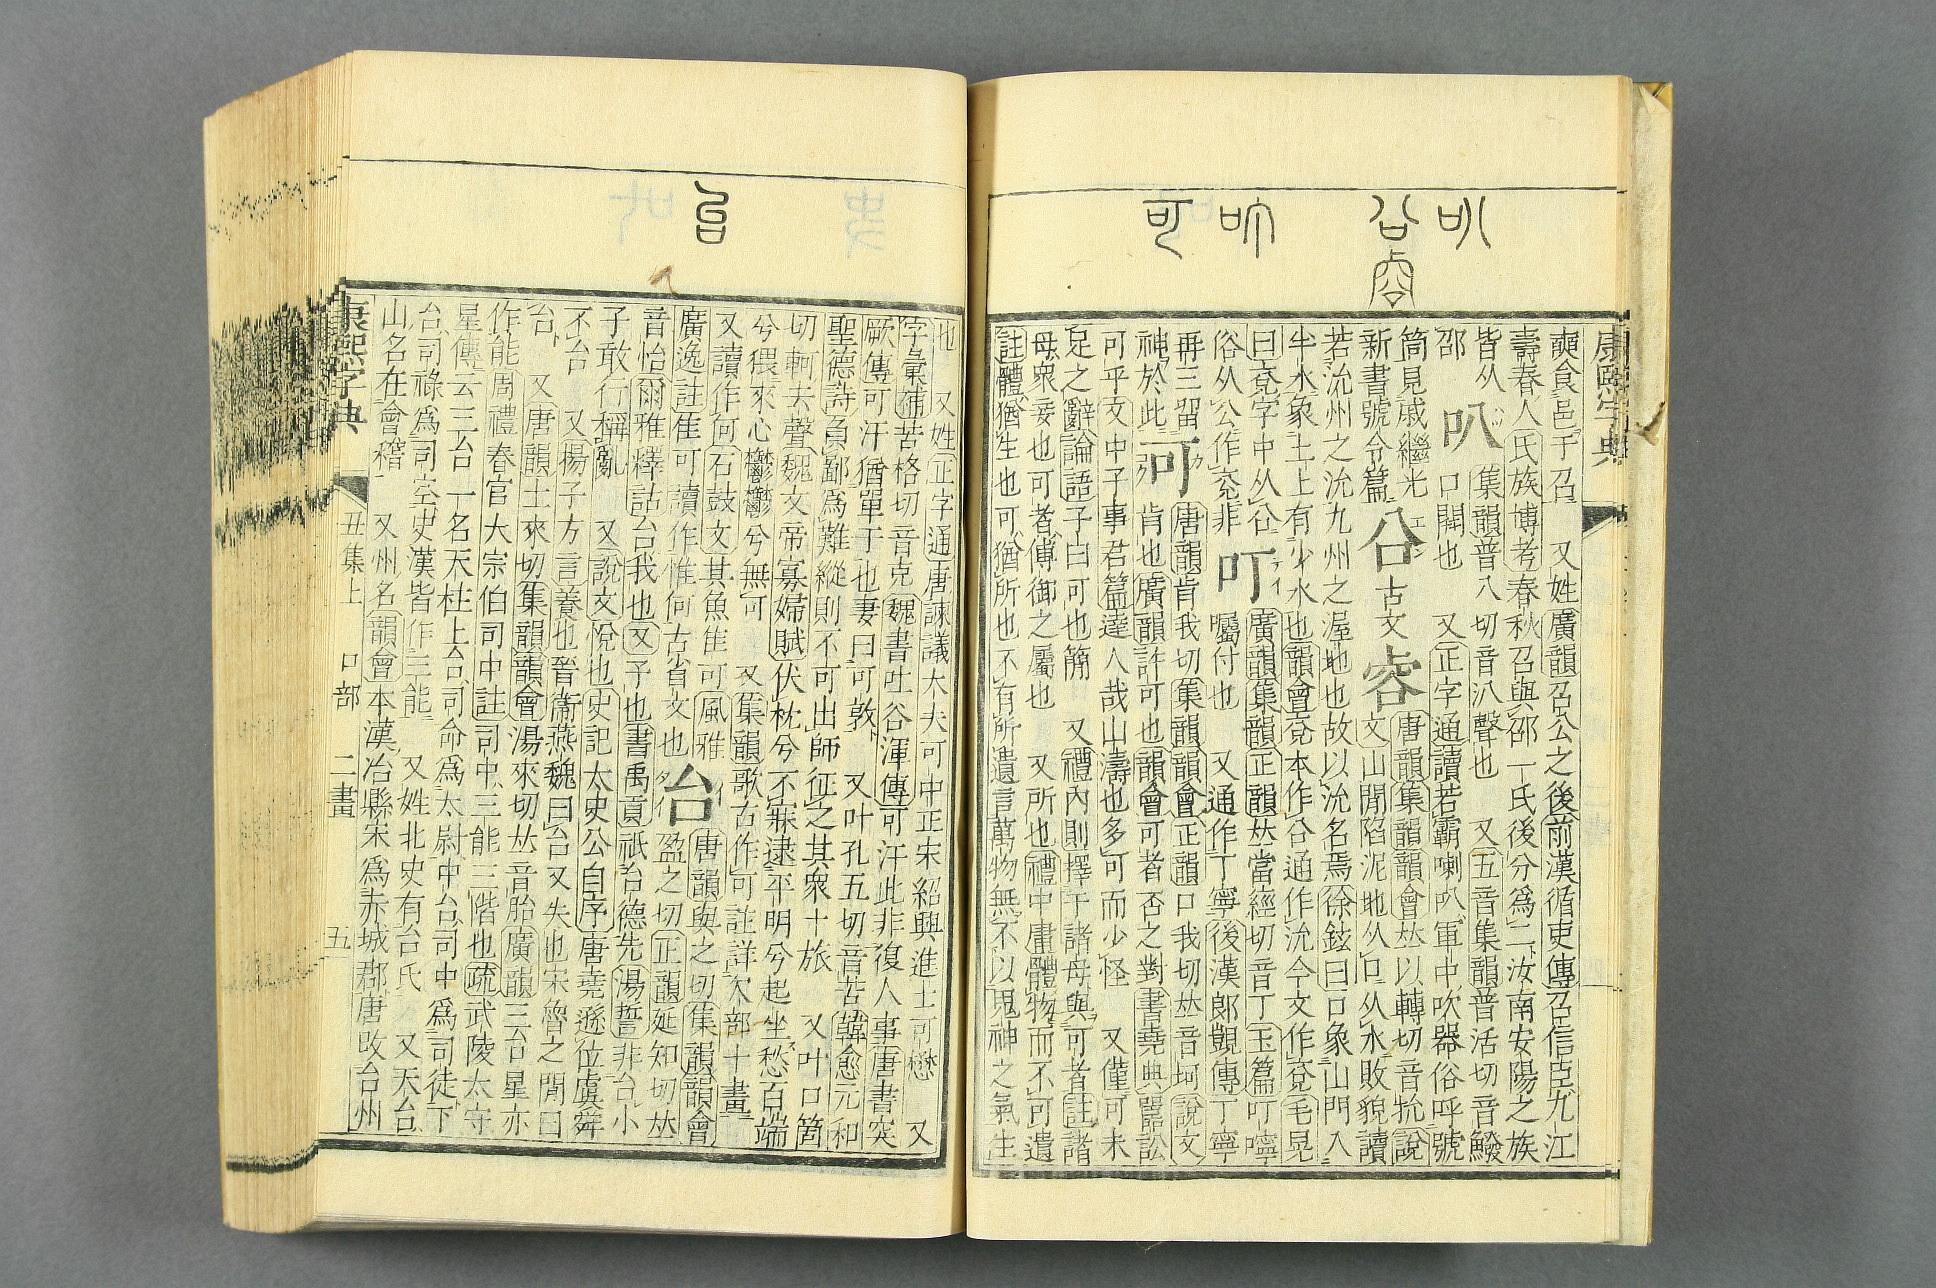 叭 㕣 叮 可
康熙字典
奭食邑于召　又姓廣韻召公之後前漢循吏傳召信臣九江
壽春人氏族博考春秋召與邵一氏後分爲二汝南安陽之族
皆从
邵
叭
集韻普八切音汃聲也　又五音集韻普活切音鱍
口開也　又正字通讀若霸喇叭軍中吹器俗呼號
筒見戚繼光
新書號令篇
㕣 古文容
唐韻集韻韻會𠀤以轉切音抗說
文山閒陷泥地从口从水敗貌讀
若沇州之沇九州之渥地也故以沇名焉徐鉉曰口象山門入
半水象土上有少水也韻會兗本作㕣通作沇今文作兗毛晃
曰兗字中从㕣
俗从公作兖非
叮
廣韻集韻正韻𠀤當經切音丁玉篇叮嚀
囑付也　又通作丁寧後漢郎顗傳丁寧
再三留
神於此
可
唐韻肯我切集韻韻會正韻口我切𠀤音坷說文
肯也廣韻許可也韻會可者否之對書堯典嚚訟
可乎文中子事君篇達人哉山濤也多可而少怪　又僅可未
足之辭論語子曰可也簡　又禮內則擇于諸母與可者註諸
母衆妾也可者傅御之屬也　又所也禮中庸體物而不可遺
註體猶生也可猶所也不有所遺言萬物無不以鬼神之氣生
台
也　又姓正字通唐諫議大夫可中正宋紹興進士可懋　又
字彙補苦格切音克魏書吐谷渾傳可汗此非復人事唐書突
厥傳可汗猶單于也妻曰可敦　又叶孔五切音苦韓愈元和
聖德詩負鄙爲難縱則不可出師征之其衆十旅　又叶口箇
切軻去聲魏文帝寡婦賦伏枕兮不寐逮平明兮起坐愁百端
兮猥來心鬱鬱兮無可　又集韻歌古作可註詳欠部十畫
又讀作何石鼓文其魚隹可風雅
廣逸註隹可讀作惟何古省文也
台
唐韻與之切集韻韻會
盈之切正韻延知切𠀤
音怡爾雅釋詁台我也又予也書禹貢祗台德先湯誓非台小
子敢行稱亂　又說文悅也史記太史公自序唐堯遜位虞舜
不台　又揚子方言養也晉衞燕魏曰台又失也宋魯之閒曰
台　又唐韻土來切集韻韻會湯來切𠀤音胎廣韻三台星亦
作能周禮春官大宗伯司中註司中三能三階也疏武陵太守
星傳云三台一名天柱上台司命爲太尉中台司中爲司徒下
台司祿爲司空史漢皆作三能　又姓北史有台氏　又天台
山名在會稽　又州名韻會本漢冶縣宋爲赤城郡唐改台州
康熙字典　丑集上　口部　二畫　五